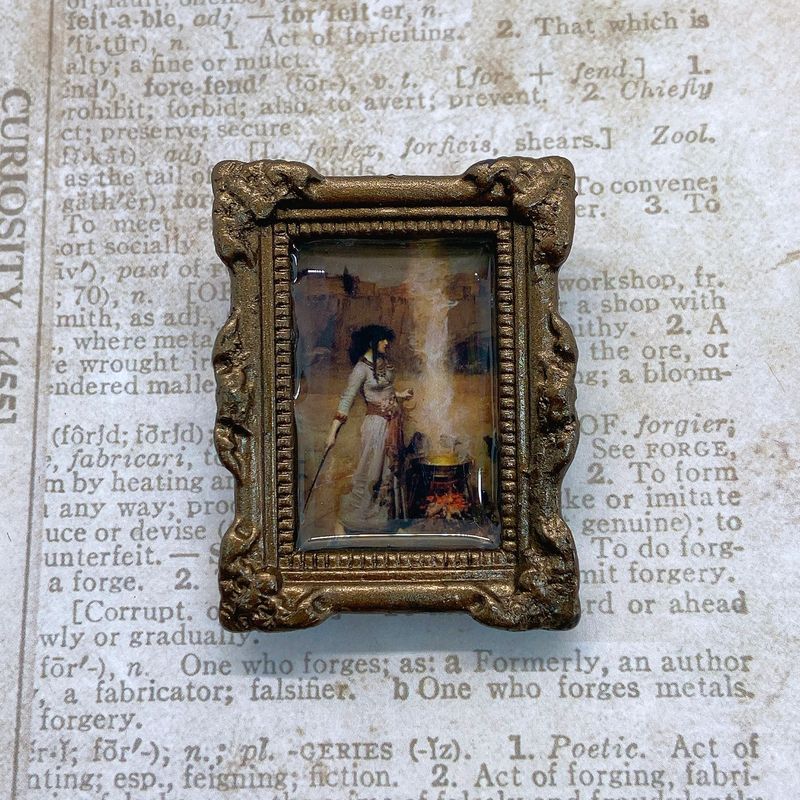 or, fault, offense, or
feit·a·ble, adj. — for′feit·er, n.
n. 1. Act of forfeiting. 2. That which is
alty; a fine or mulct.
fore·fend′ (fōr-), v.t. [for- + fend.] 1.
rohibit; forbid; also, to avert; prevent. 2. Chiefly
ct; preserve; secure.
adj. forfex, forficis, shears.] Zool.
as the tail of
găth′ẽr), To convene;
To meet er. 3. To
ort socially
past of
; 70), n. workshop, fr.
mith, as adj. a shop with
, where meta ithy. 2. A
e wrought the ore, or
ndered malle ng; a bloom-
(fôrjd; fōrjd) OF. forgier;
, fabricari, t See FORGE,
m by heating an 2. To form
any way; pro ke or imitate
uce or devise genuine); to
unterfeit. — To do forg-
a forge. 2. mit forgery.
[Corrupt. o rd or ahead
wly or gradually.
fōr′-), n. One who forges; as: a Formerly, an author
, a fabricator; falsifier. b One who forges metals.
forgery.
fōr′-); n.; pl. -GERIES (-ĭz). 1. Poetic. Act of
nting; esp., feigning; fiction. 2. Act of forging, fabri-
CURIOSITY [455]